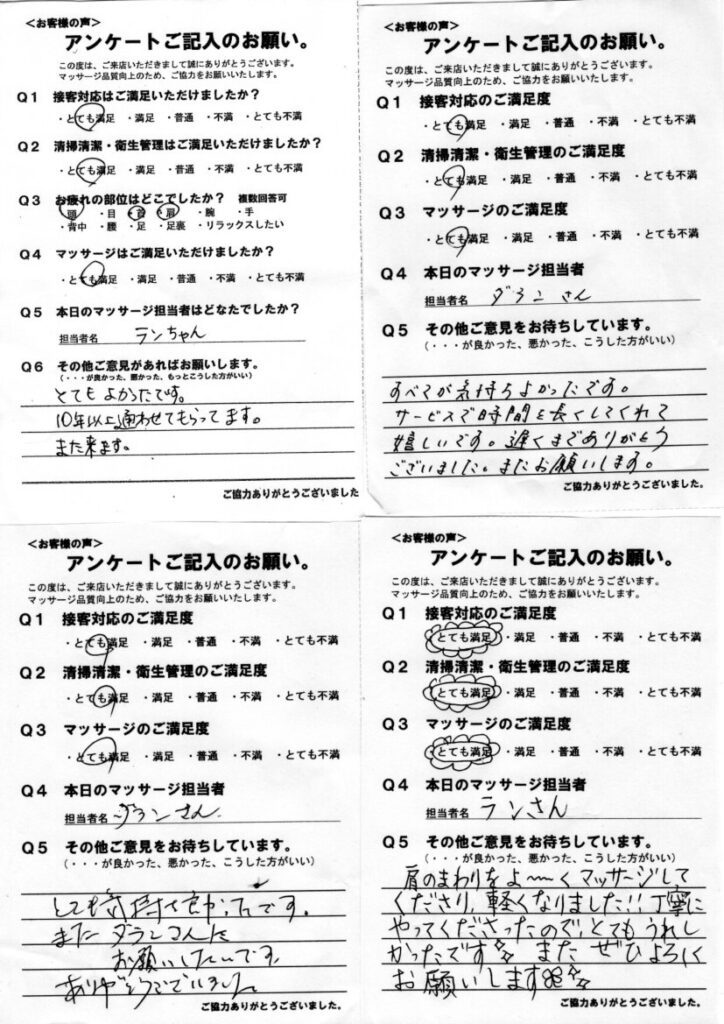 ＜お客様の声＞
アンケートご記入のお願い。
この度は、ご来店いただきまして誠にありがとうございます。
マッサージ品質向上のため、ご協力をお願いいたします。
Q1 接客対応はご満足いただけましたか？
・とても満足 ・満足 ・普通 ・不満 ・とても不満
Q2 清掃清潔・衛生管理はご満足いただけましたか？
・とても満足 ・満足 ・普通 ・不満 ・とても不満
Q3 お疲れの部位はどこでしたか？ 複数回答可
・頭 ・目 ・首 ・肩 ・腕 ・手
・背中 ・腰 ・足 ・足裏 ・リラックスしたい
Q4 マッサージはご満足いただけましたか？
・とても満足 ・満足 ・普通 ・不満 ・とても不満
Q5 本日のマッサージ担当者はどなたでしたか？
担当者名 ランちゃん
Q6 その他ご意見があればお願いします。
（・・・が良かった、悪かった、もっとこうした方がいい）
とても よかったです。
10年以上通わせてもらってます。
また来ます。
ご協力ありがとうございました
＜お客様の声＞
アンケートご記入のお願い。
この度は、ご来店いただきまして誠にありがとうございます。
マッサージ品質向上のため、ご協力をお願いいたします。
Q1 接客対応のご満足度
・とても満足 ・満足 ・普通 ・不満 ・とても不満
Q2 清掃清潔・衛生管理のご満足度
・とても満足 ・満足 ・普通 ・不満 ・とても不満
Q3 マッサージのご満足度
・とても満足 ・満足 ・普通 ・不満 ・とても不満
Q4 本日のマッサージ担当者
担当者名 ダランさん
Q5 その他ご意見をお待ちしています。
（・・・が良かった、悪かった、こうした方がいい）
すべてが気持ちよかったです。
サービスで時間を長くしてくれて
嬉しいです。遅くまでありがとう
ございました。またお願いします。
ご協力ありがとうございました。
＜お客様の声＞
アンケートご記入のお願い。
この度は、ご来店いただきまして誠にありがとうございます。
マッサージ品質向上のため、ご協力をお願いいたします。
Q1 接客対応のご満足度
・とても満足 ・満足 ・普通 ・不満 ・とても不満
Q2 清掃清潔・衛生管理のご満足度
・とても満足 ・満足 ・普通 ・不満 ・とても不満
Q3 マッサージのご満足度
・とても満足 ・満足 ・普通 ・不満 ・とても不満
Q4 本日のマッサージ担当者
担当者名 ダランさん
Q5 その他ご意見をお待ちしています。
（・・・が良かった、悪かった、こうした方がいい）
とても気持ち良かったです。
またダランさんに
お願いしたいです。
ありがとうございました
ご協力ありがとうございました。
＜お客様の声＞
アンケートご記入のお願い。
この度は、ご来店いただきまして誠にありがとうございます。
マッサージ品質向上のため、ご協力をお願いいたします。
Q1 接客対応のご満足度
・とても満足 ・満足 ・普通 ・不満 ・とても不満
Q2 清掃清潔・衛生管理のご満足度
・とても満足 ・満足 ・普通 ・不満 ・とても不満
Q3 マッサージのご満足度
・とても満足 ・満足 ・普通 ・不満 ・とても不満
Q4 本日のマッサージ担当者
担当者名 ランさん
Q5 その他ご意見をお待ちしています。
（・・・が良かった、悪かった、こうした方がいい）
肩のまわりをよ〜くマッサージして
くださり、軽くなりました!! 丁寧に
やってくださったので とてもうれし
かったです また ぜひよろしく
お願いします
ご協力ありがとうございました。